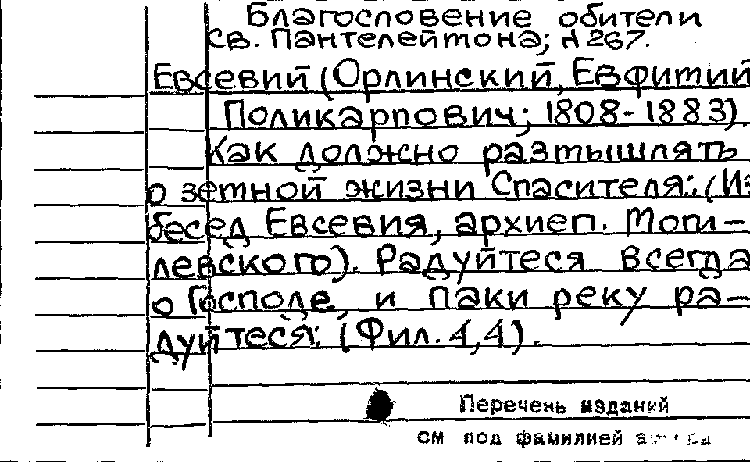 Благословение обители
св. Пантелеймона; № 267.
Евсевий (Орлинский, Евфимий
Поликарпович; 1808-1883).
Как должно размышлять
о земной жизни Спасителя: (Из
бесед Евсевия, архиеп. Моги-
левского). Радуйтеся всегда
о Господе, и паки реку ра-
дуйтеся: (Фил. 4,4).
Перечень изданий
см под фамилией автора